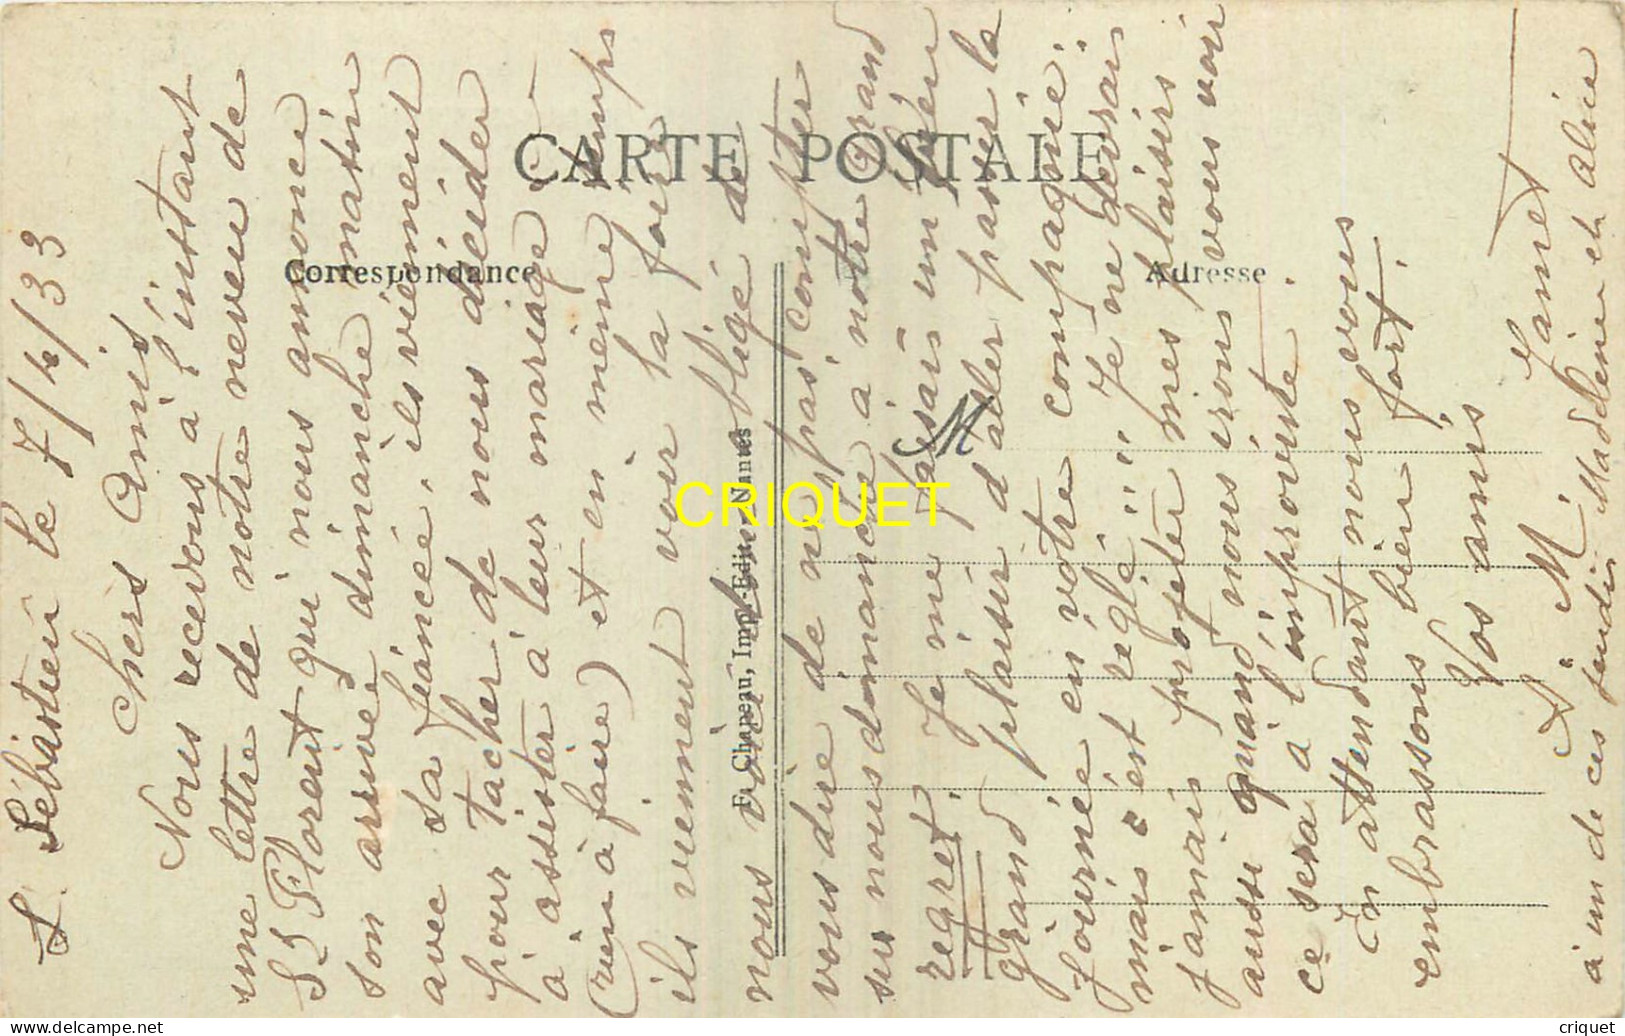 S. Sébastien le 7/4/33
Chers Amis
Nous recevons à l'instant
une lettre de notre neveu de
St Florent qui nous annonce
son arrivée dimanche matin
avec sa fiancée, ils viennent
pour tacher de nous décider
à assister à leur mariage
(rien à faire) et en même temps
ils viennent voir la foire
nous voici donc obligé de
vous dire de ne pas compter
sur nous dimanche à notre grand
regret. Je me faisais un bien
grand plaisir d'aller passer la
journée en votre compagnie.
mais c'est réglé!!! Je ne devrais
jamais projeter mes plaisirs
aussi quand nous irons vous voir
ce sera à l'improviste.
En attendant nous vous
embrassons bien fort.
Vos amis
A. M. Jamet
à un de ces jeudis Madeleine et Aline
CARTE POSTALE
Correspondance
Adresse
M
F. Chapeau, Imp.-Edit., Nantes
CRIQUET
criquet
criquet